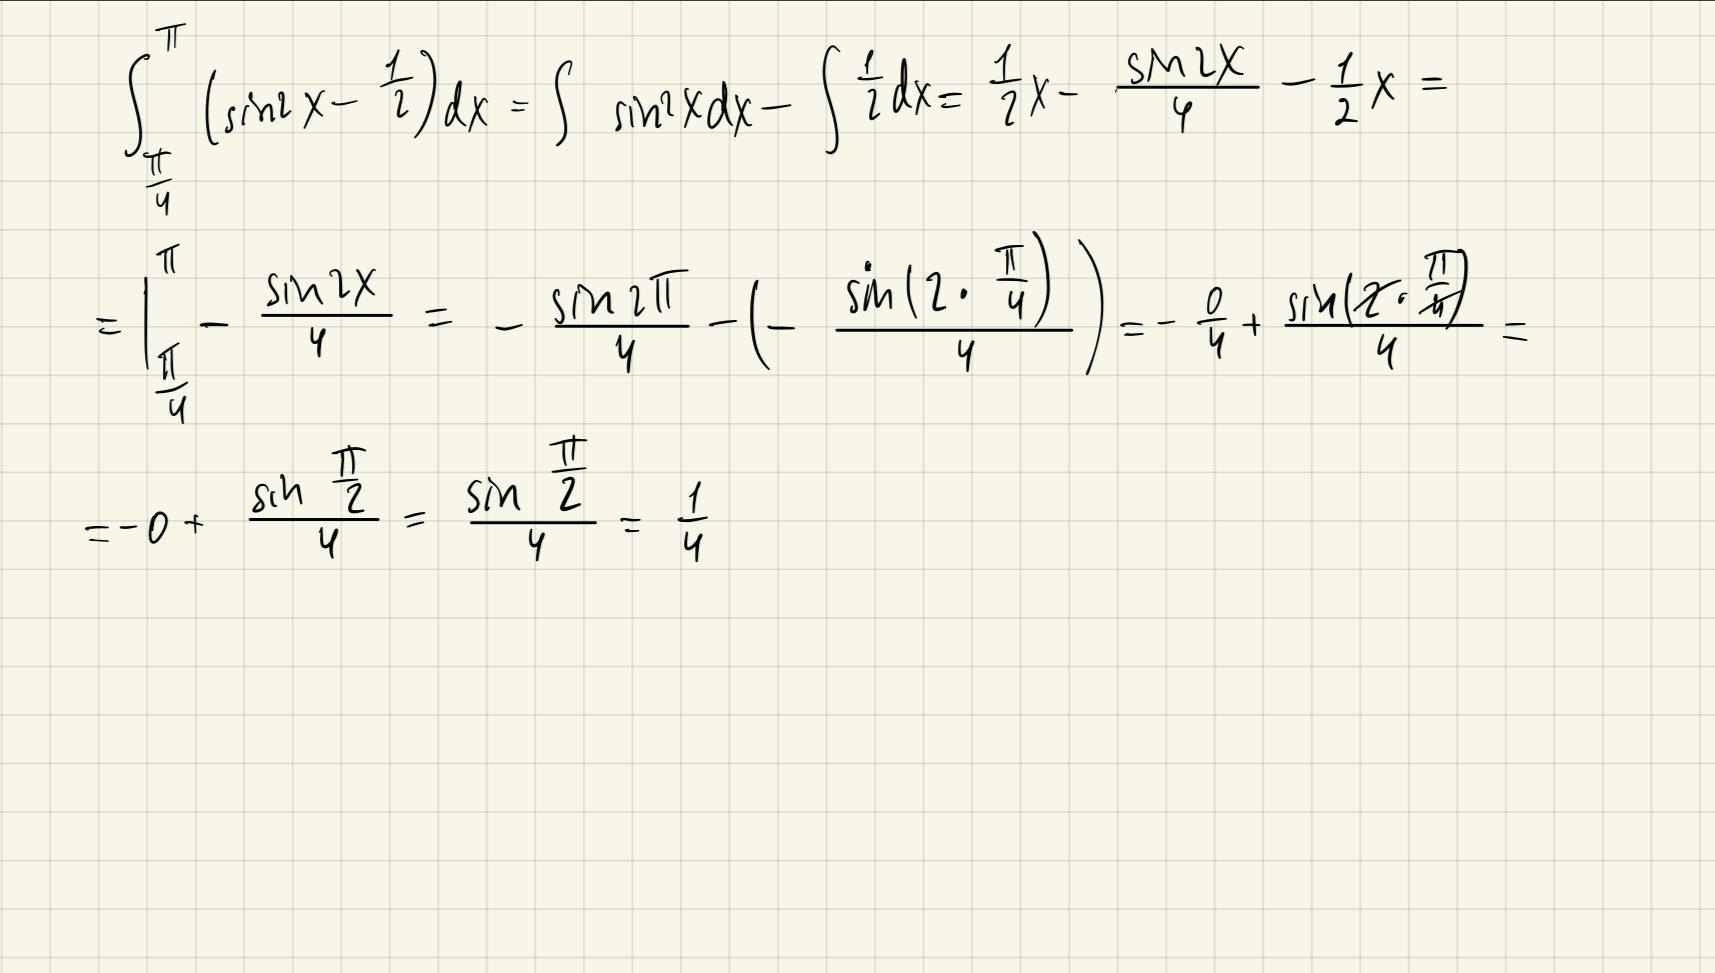 ∫_{π/4}^{π} (sin²x - 1/2) dx = ∫ sin²x dx - ∫ 1/2 dx = 1/2 x - sin2x/4 - 1/2 x =
= |_{π/4}^{π} - sin2x/4 = - sin2π/4 - (- sin(2·π/4)/4) = - 0/4 + sin(2·π/4)/4 =
= -0 + sin π/2 / 4 = sin π/2 / 4 = 1/4